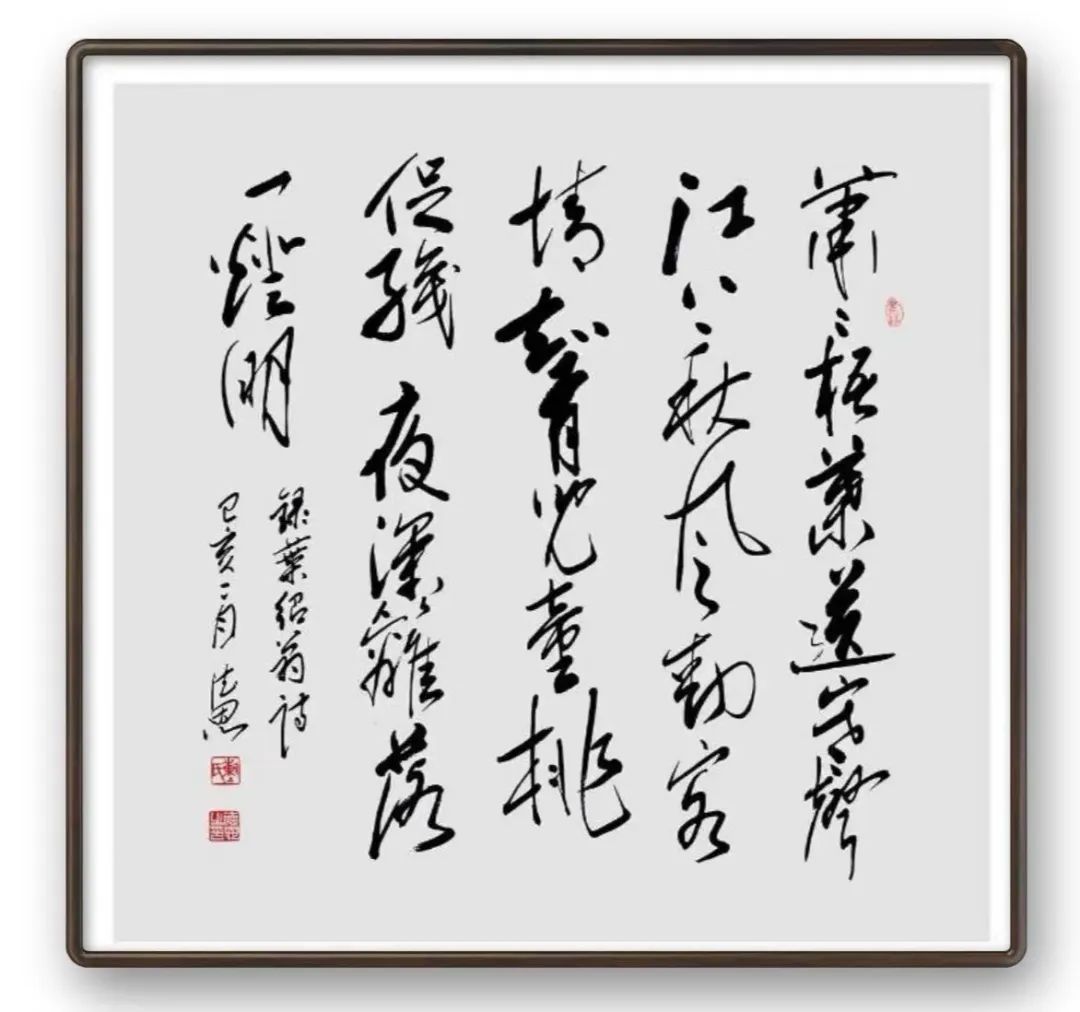 蕭〻梧葉送寒聲
江上秋風動客
情知有兒童挑
促織夜深籬落
一燈明
録葉紹翁詩
己亥二月